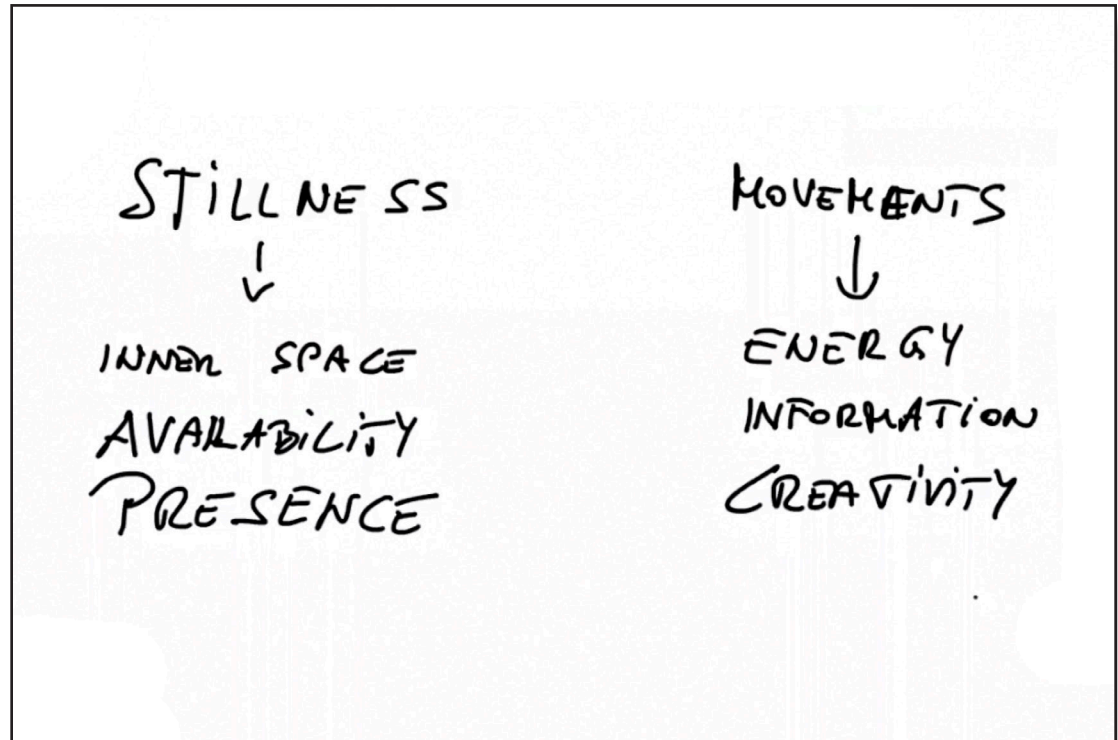 STiLLNESS
↓
INNER SPACE
AVAILABiLiTY
PRESENCE
MOVEMENTS
↓
ENERGY
INFORMATiON
CREATiViTY